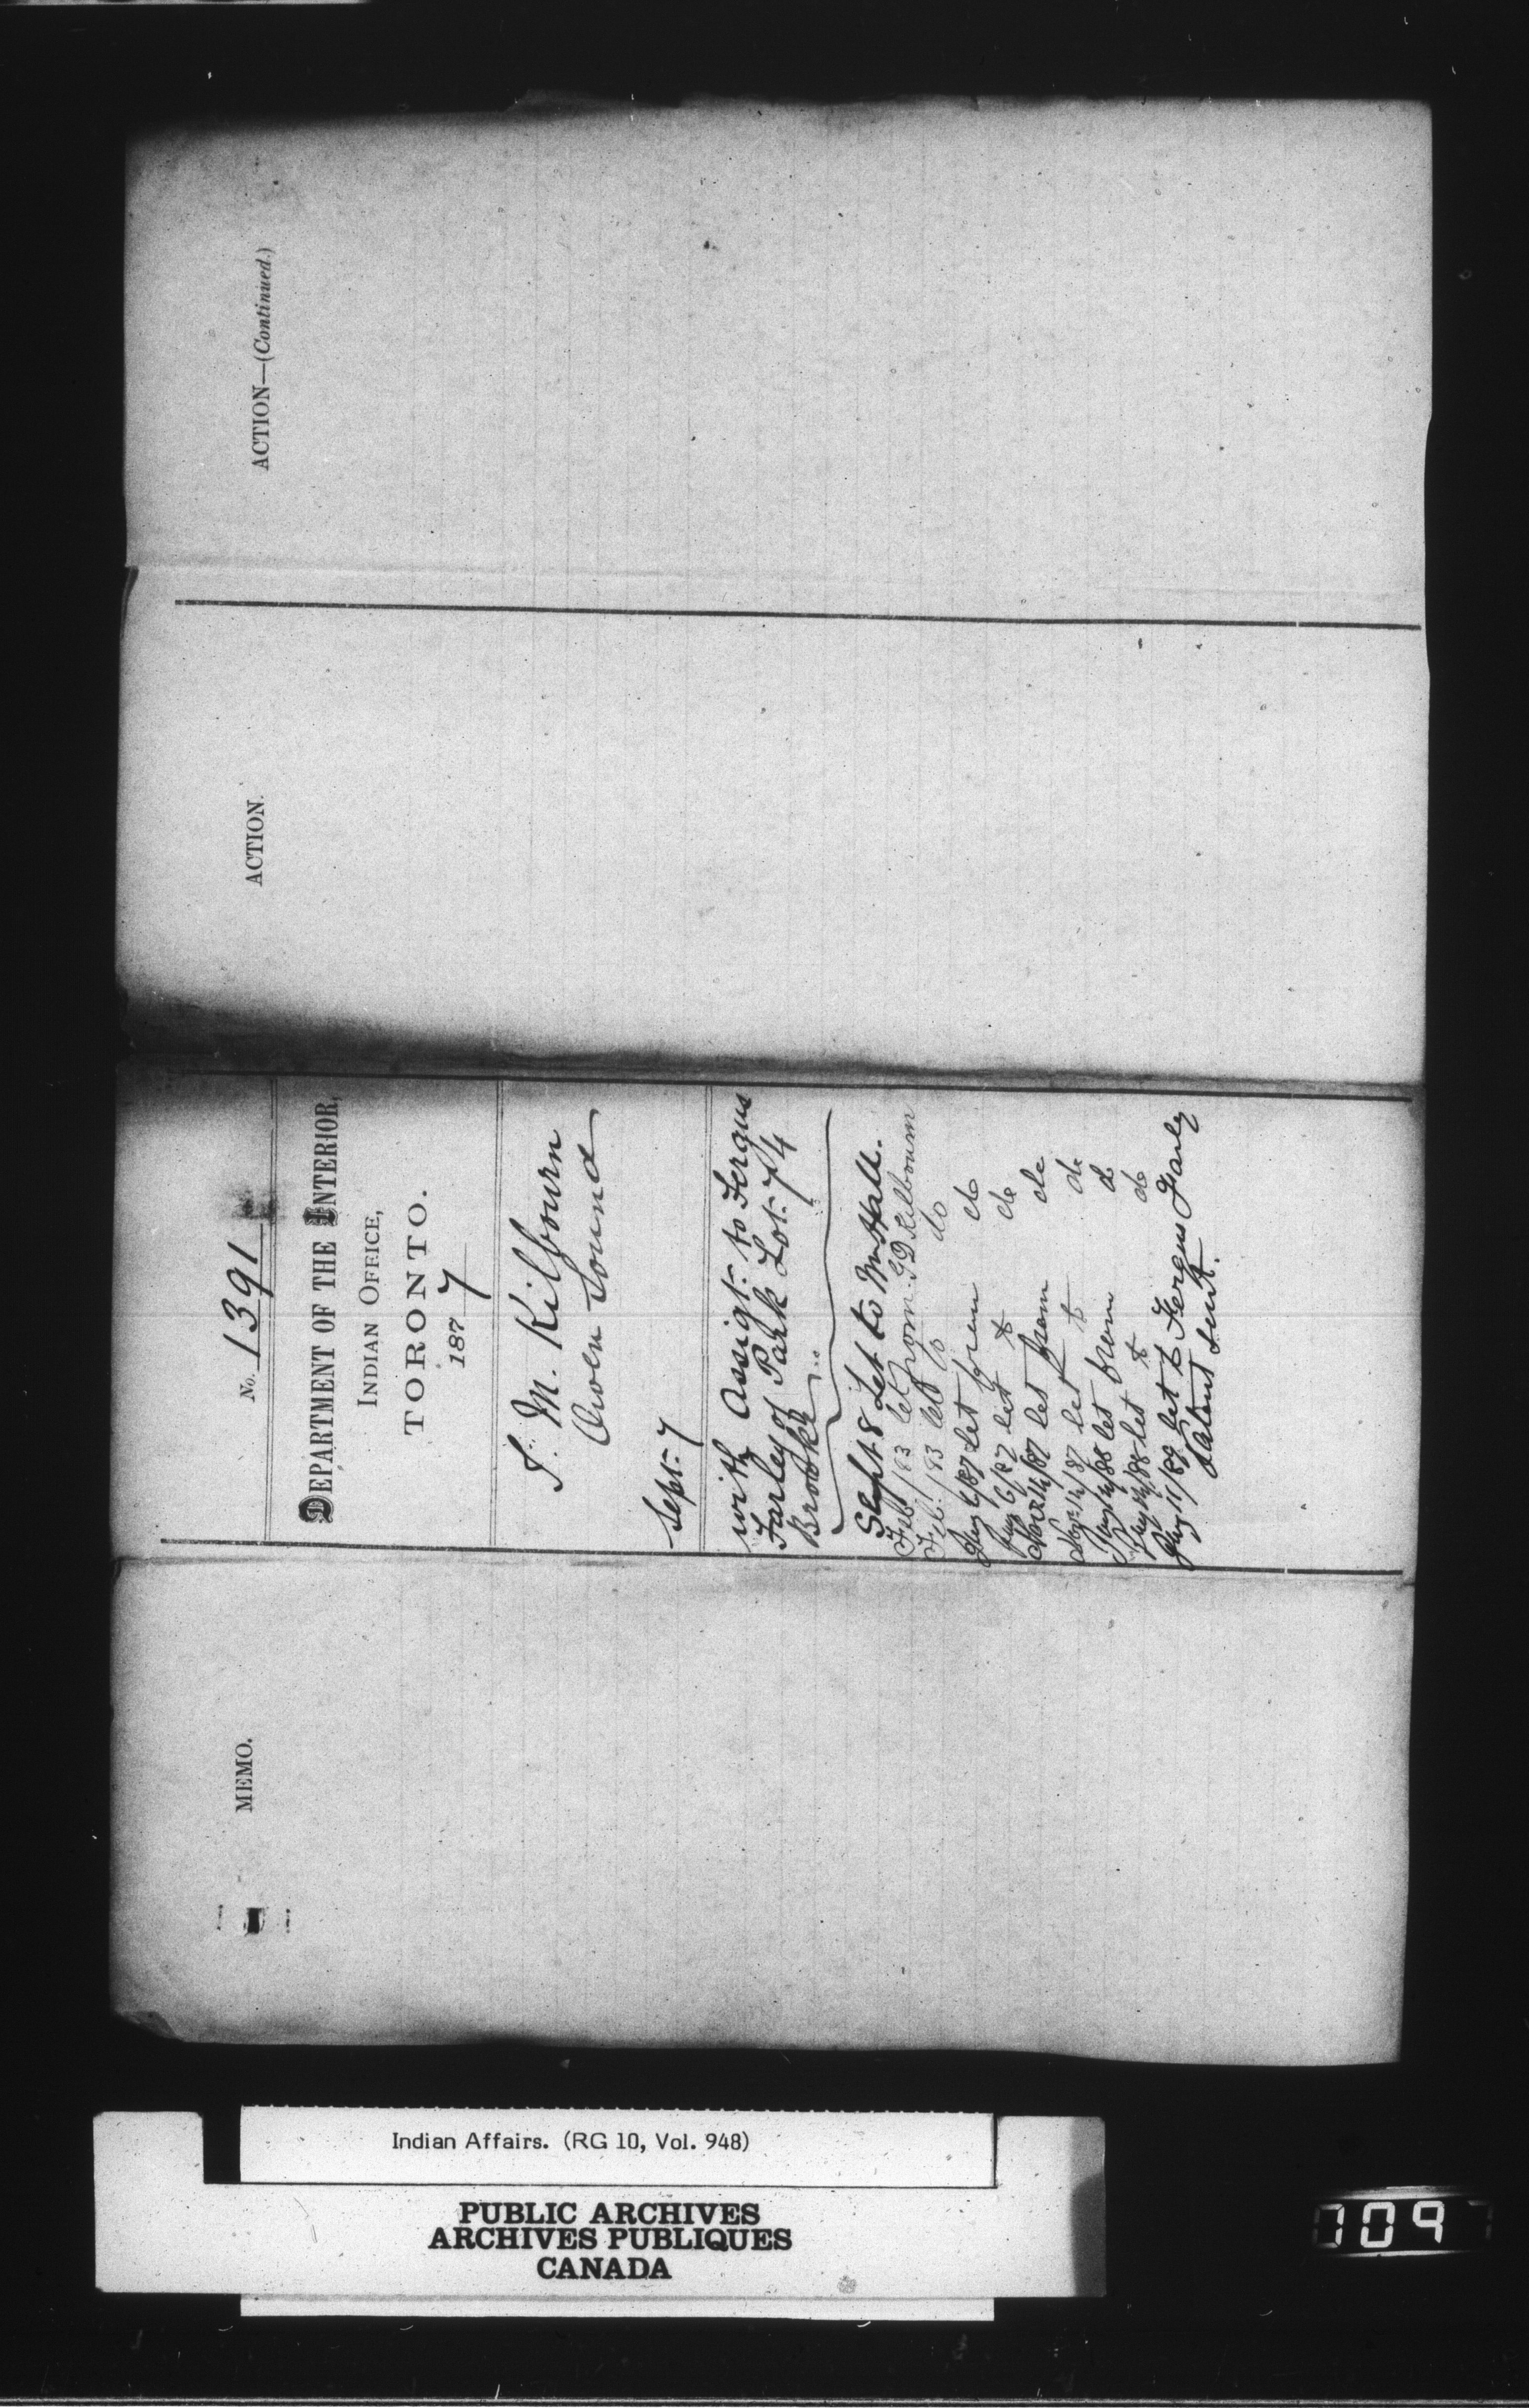 MEMO.
No. 1391
DEPARTMENT OF THE INTERIOR,
INDIAN OFFICE,
TORONTO.
1877
J. M. Kilbourn
Owen Sound
Sept. 7
with Assigt. to Fergus
Farley of Park Lot 74
Brooke
Sept 8 Let to Mr Hall.
Feb /83 let from J D Kilbourn
Feb /83 let to do
Aug 6/87 let from do
Aug 6/87 let to do
Nov 14/87 let from do
Nov 14/87 let to do
Jany 14/88 let from do
Jany 14/88 let to do
Jany 11/89 let to Fergus Farley
Patent sent.
ACTION.
ACTION—(Continued.)
Indian Affairs. (RG 10, Vol. 948)
PUBLIC ARCHIVES
ARCHIVES PUBLIQUES
CANADA
709